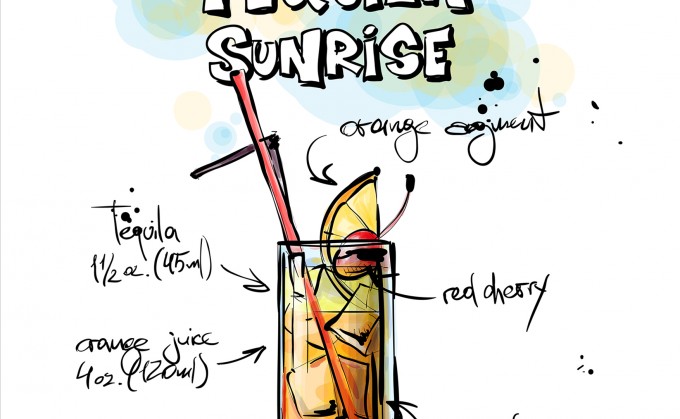 TEQUILA
SUNRISE
orange segment
Tequila
1 1/2 oz. (45ml)
red cherry
orange juice
4 oz. (120ml)